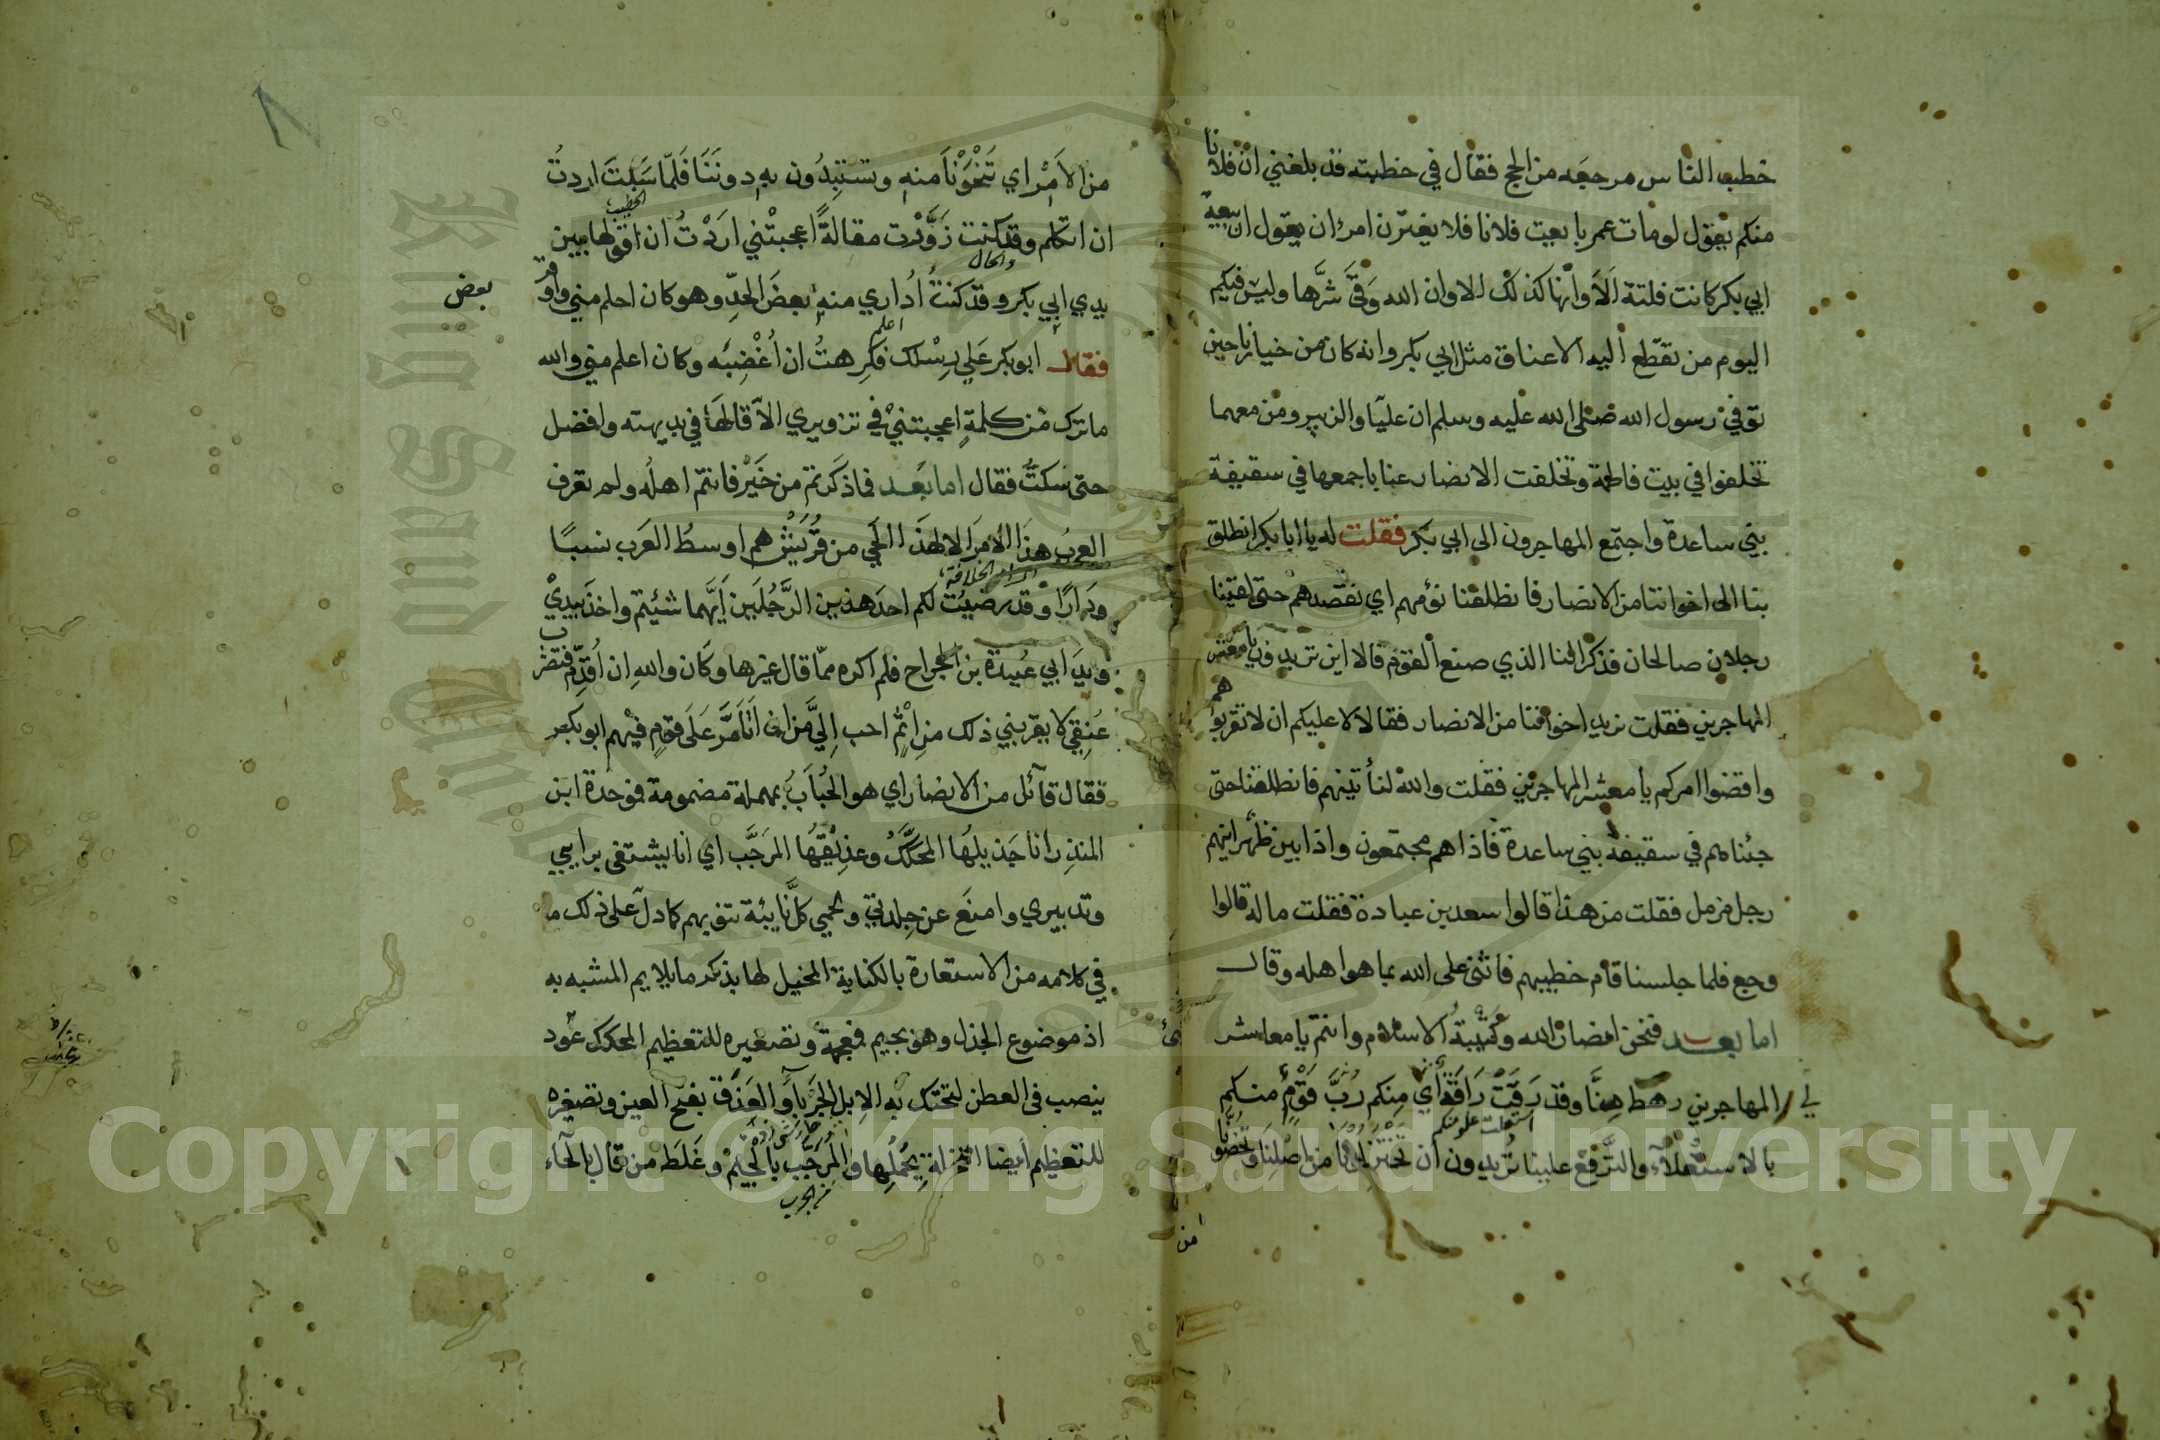 خطب الناس مرجعه من الحج فقال في خطبته قد بلغني ان فلانا
منكم يقول لومات عمر بايعت فلانا فلا يغترن امرؤ ان يقول ان بيعة
ابي بكر كانت فلتة ألا وانها كذلك الا وان الله وَقَى شرَّها وليس فيكم
اليوم من تقطّع اليه الاعناق مثل ابي بكر وانه كان من خيارنا حين
توفي رسول الله صلى الله عليه وسلم ان عليا والزبير ومن معهما
تخلفوا في بيت فاطمة وتخلفت الانصار عنا باجمعها في سقيفة
بني ساعدة واجتمع المهاجرون الى ابي بكر فقلت له يا ابا بكر انطلق
بنا الى اخواننا من الانصار فانطلقنا نؤمهم اي نقصدهم حتى لقينا
رجلان صالحان فذكرا لنا الذي صنع القوم قالا اين تريدون يا معشر
المهاجرين فقلت نريد اخواننا من الانصار فقالا لا عليكم ان لا تقربوهم
واقضوا امركم يا معشر المهاجرين فقلت والله لنأتينهم فانطلقنا حتى
جئناهم في سقيفة بني ساعدة فاذا هم مجتمعون واذا بين ظهرانيهم
رجل مزمل فقلت من هذا قالوا سعد بن عبادة فقلت ما له قالوا
وجع فلما جلسنا قام خطيبهم فاثنى على الله بما هو اهله وقال
اما بعد فنحن انصار الله وكتيبة الاسلام وانتم يا معاشر
المهاجرين رهط منا وقد رَفَّتْ رَافة أي منكم رُبَّ قَوْمٍ منكم
بالاستعلاء والترفع علينا تريدون ان تختزلونا من اصلنا وتحضنونا
من
من الأمر اي تنحّونا منه وتستبدون به دوننا فلما سكت اردت
ان اتكلم وقد كنت زَوَّرت مقالةً اعجبتني اردت ان اقولها بين
الخطيب
يدي ابي بكر وقد كنتُ أُداري منه بعض الحدّ وهو كان احلم مني واوقر
والحال
بعض
فقال ابو بكر على رِسْلك فكرهتُ ان أُغْضِبَه وكان اعلم مني والله
اعلم
ما ترك من كلمةٍ اعجبتني في تزويري الا قالها في بديهته وافضل
حتى سكت فقال اما بعد فما ذكرتم من خير فانتم اهله ولم تعرف
العرب هذا الأمر الا لهذا الحي من قريش هم اوسطُ العرب نسبًا
ودارًا وقد رضيتُ لكم احد هذين الرَّجُلَين ايَّهما شئتم واخذ بيدي
وبيد ابي عبيدة بن الجراح فلم اكره مما قال غيرها وكان والله ان أُقدّم فتضرب
عُنقي لا يقربني ذلك من اثم احب اليَّ من ان اتأمّر على قوم فيهم ابو بكر
فقال قائل من الانصار اي هو الحُبابُ بمهملة مضمومة فموحدة ابن
المنذر انا جذيلها المحكك وعذيقها المرجَّب اي انا يشتفى برايي
وتدبيري وامنع عن جلدتي ولحمي كل نائبة تنوبهم كما دل على ذلك ما
في كلامه من الاستعارة بالكناية المخيل لها بذكر ما يلايم المشبه به
اذ موضوع الجذل وهو بجيم فمعجمة وتصغيره للتعظيم المحكك عود
ينصب في العطن لتحتك به الابل الجرباء والعَذق بفتح العين وتصغيره
للتعظيم أيضا النخلة بحملها والمرجّب بالجيم وغلط من قال بالحاء